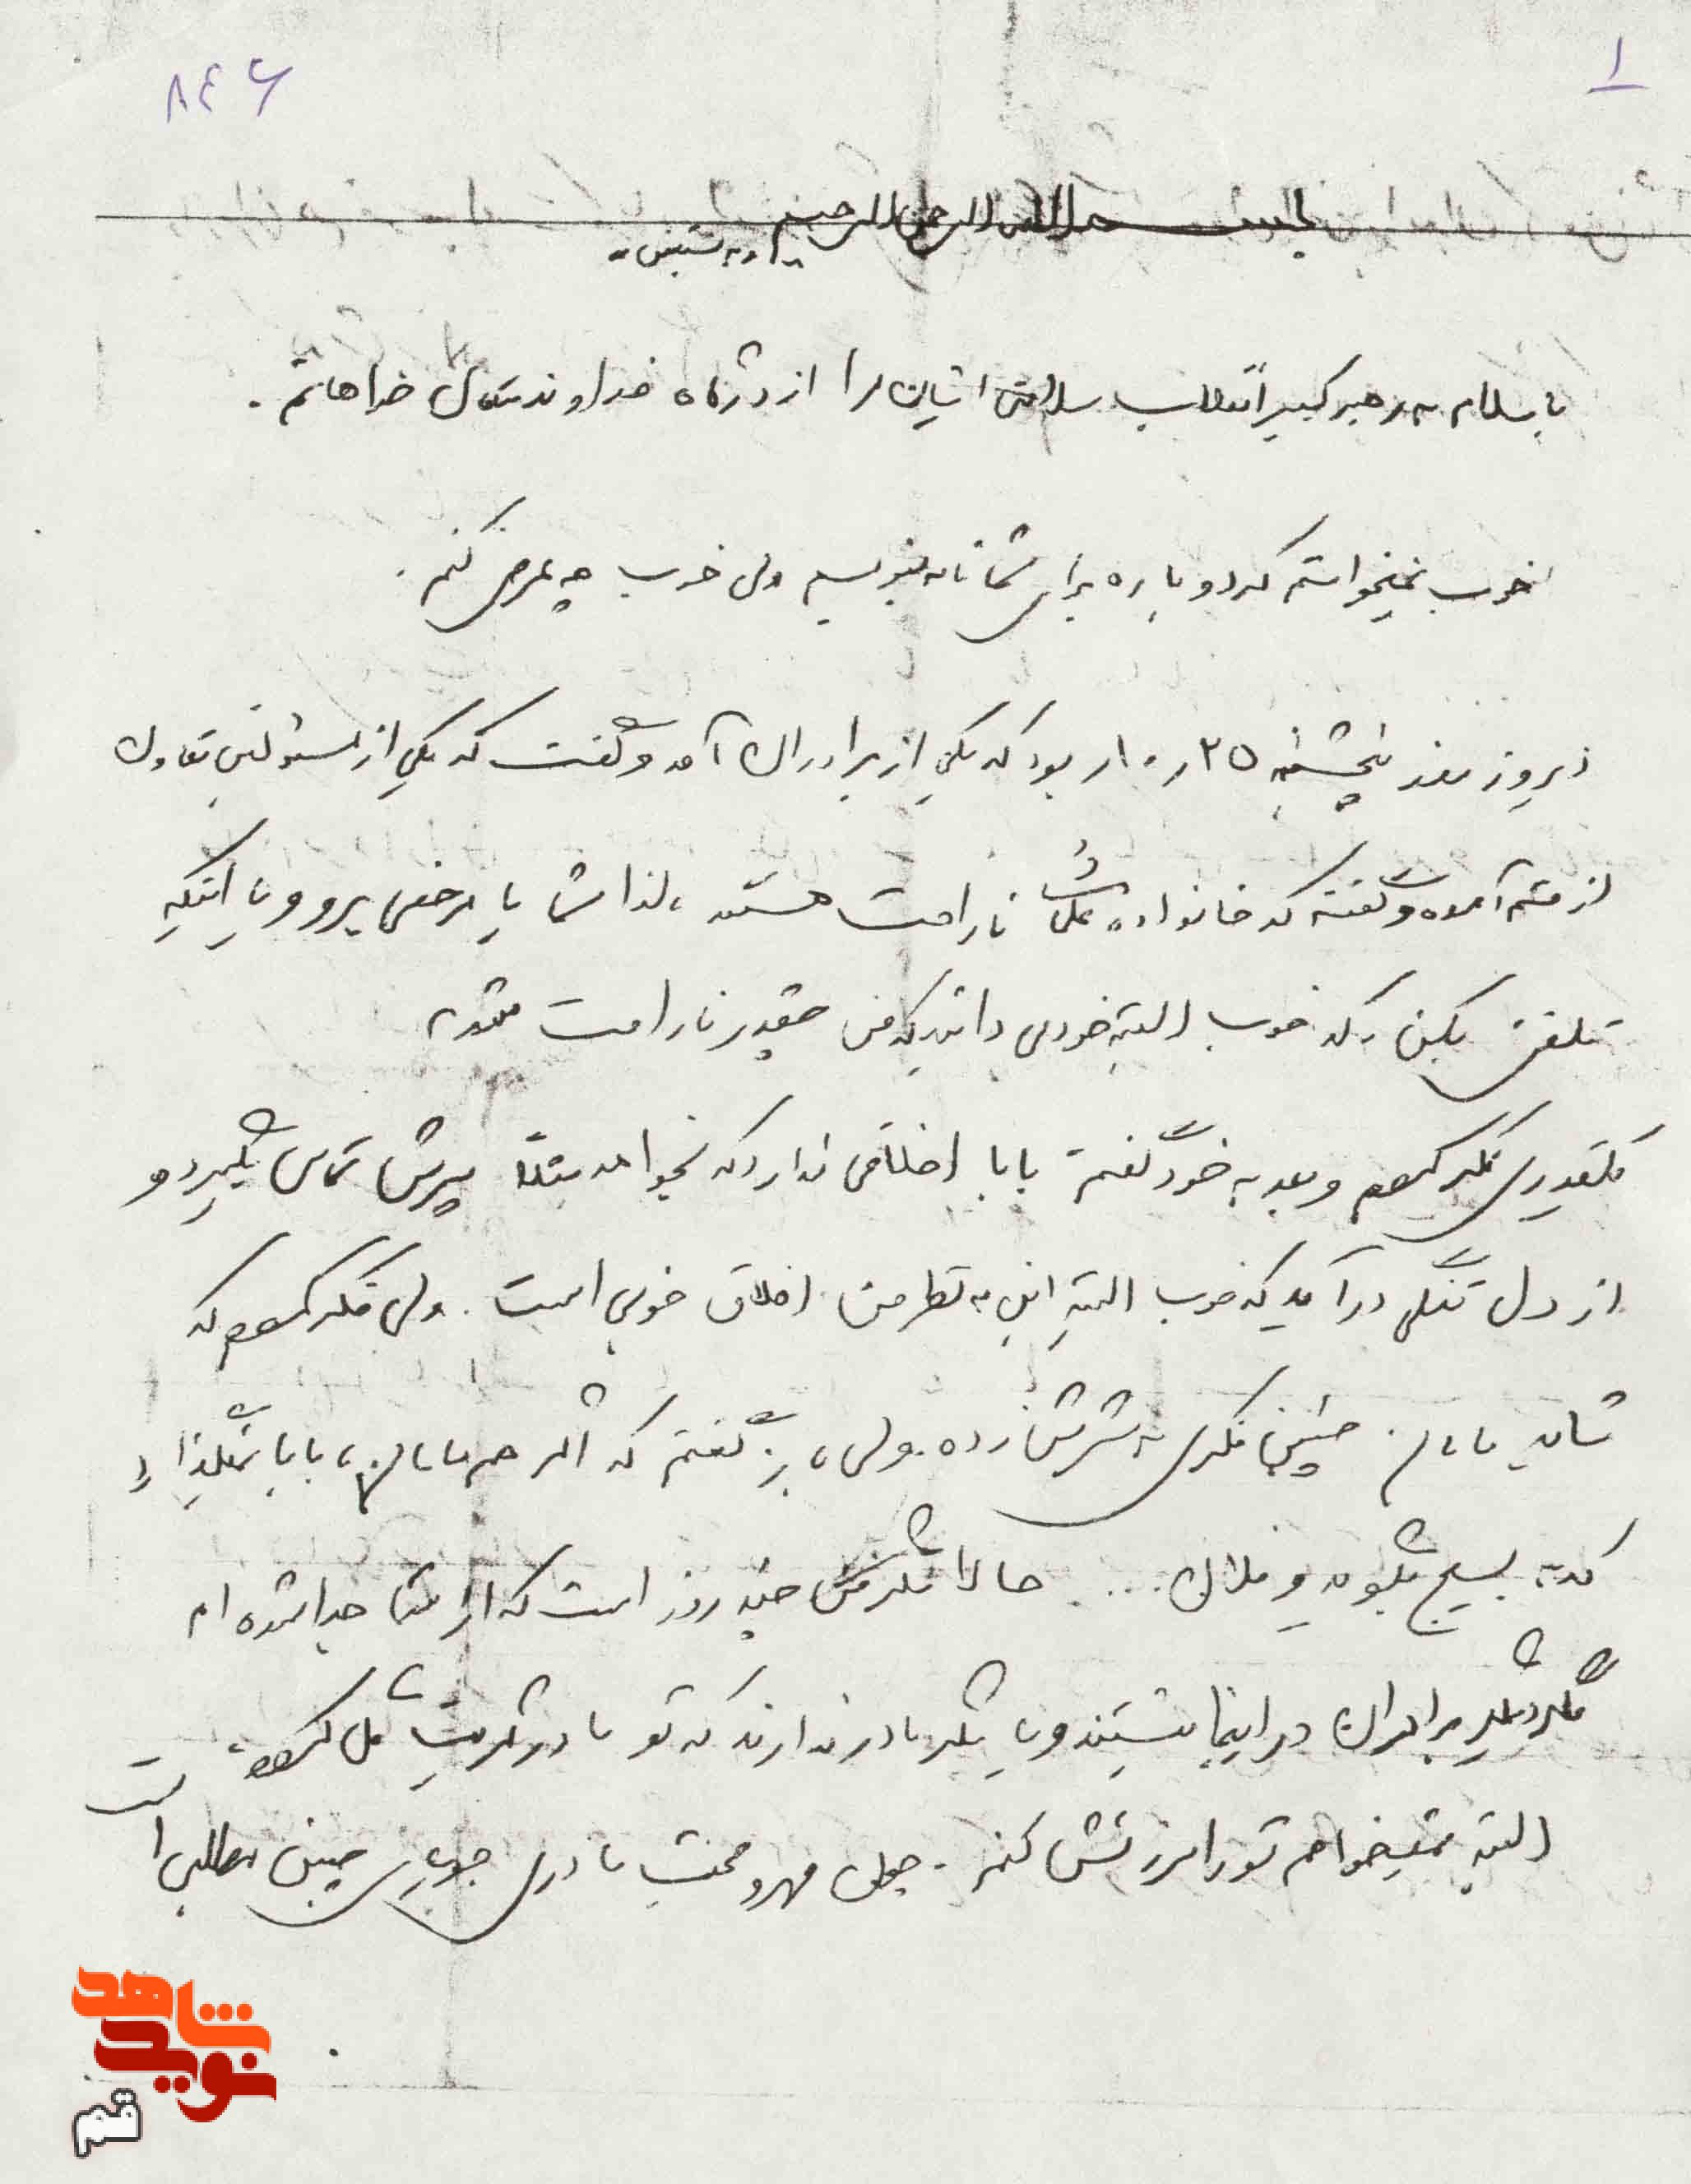 ۱
۸۴۶
بسم الله الرحمن الرحیم و به نستعین
با سلام به رهبر کبیر انقلاب سلامتی ایشان را از درگاه خداوند متعال خواهانم.
خوب نمیخواستم که دوباره برای شما نامه بنویسم ولی خوب چه عرض کنم.
دیروز روز پنجشنبه ۲۵ر۱۰ بود که یکی از برادران آمد و گفت که یکی از مسئولین تعاون
از قم آمده و گفته که خانواده علی ناراحت هستند، لذا شما یا مرخصی برو و یا اینکه
تلفن بکن. که خوب البته خود می دانید که من چقدر ناراحت شدم
مقداری فکر کردم و بعد به خود گفتم بابا اخلاقی ندارد که بخواهد مثلا پسرش تماس بگیرد و
از دل تنگی درآید که خوب البته این به نظر من اخلاق خوبی است. ولی فکر کردم که
شاید مامان چنین فکری به سرش زده. ولی باز گفتم که اگر هم مامان، بابا نمیگذارد
که به بسیج بگوید و فلان.... حالا مگر من چند روز است که از شما جدا شده ام
مگر دیگر برادران در اینجا نیستند و یا مگر مادر ندارند که تو مادر
البته نمیخواهم تو را سرزنش کنم. چون مهر و محبت مادری جویای چنین مطلبی است
شاهد
نوید
قم